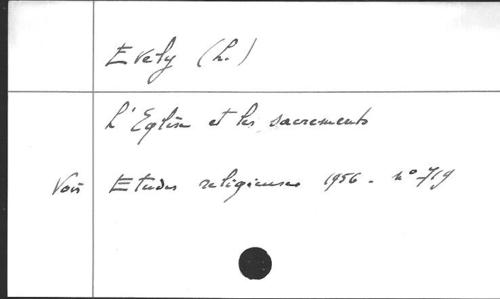 Evely (L.)
L'Eglise et les sacrements
Voir Etudes religieuses 1956 - n° 719